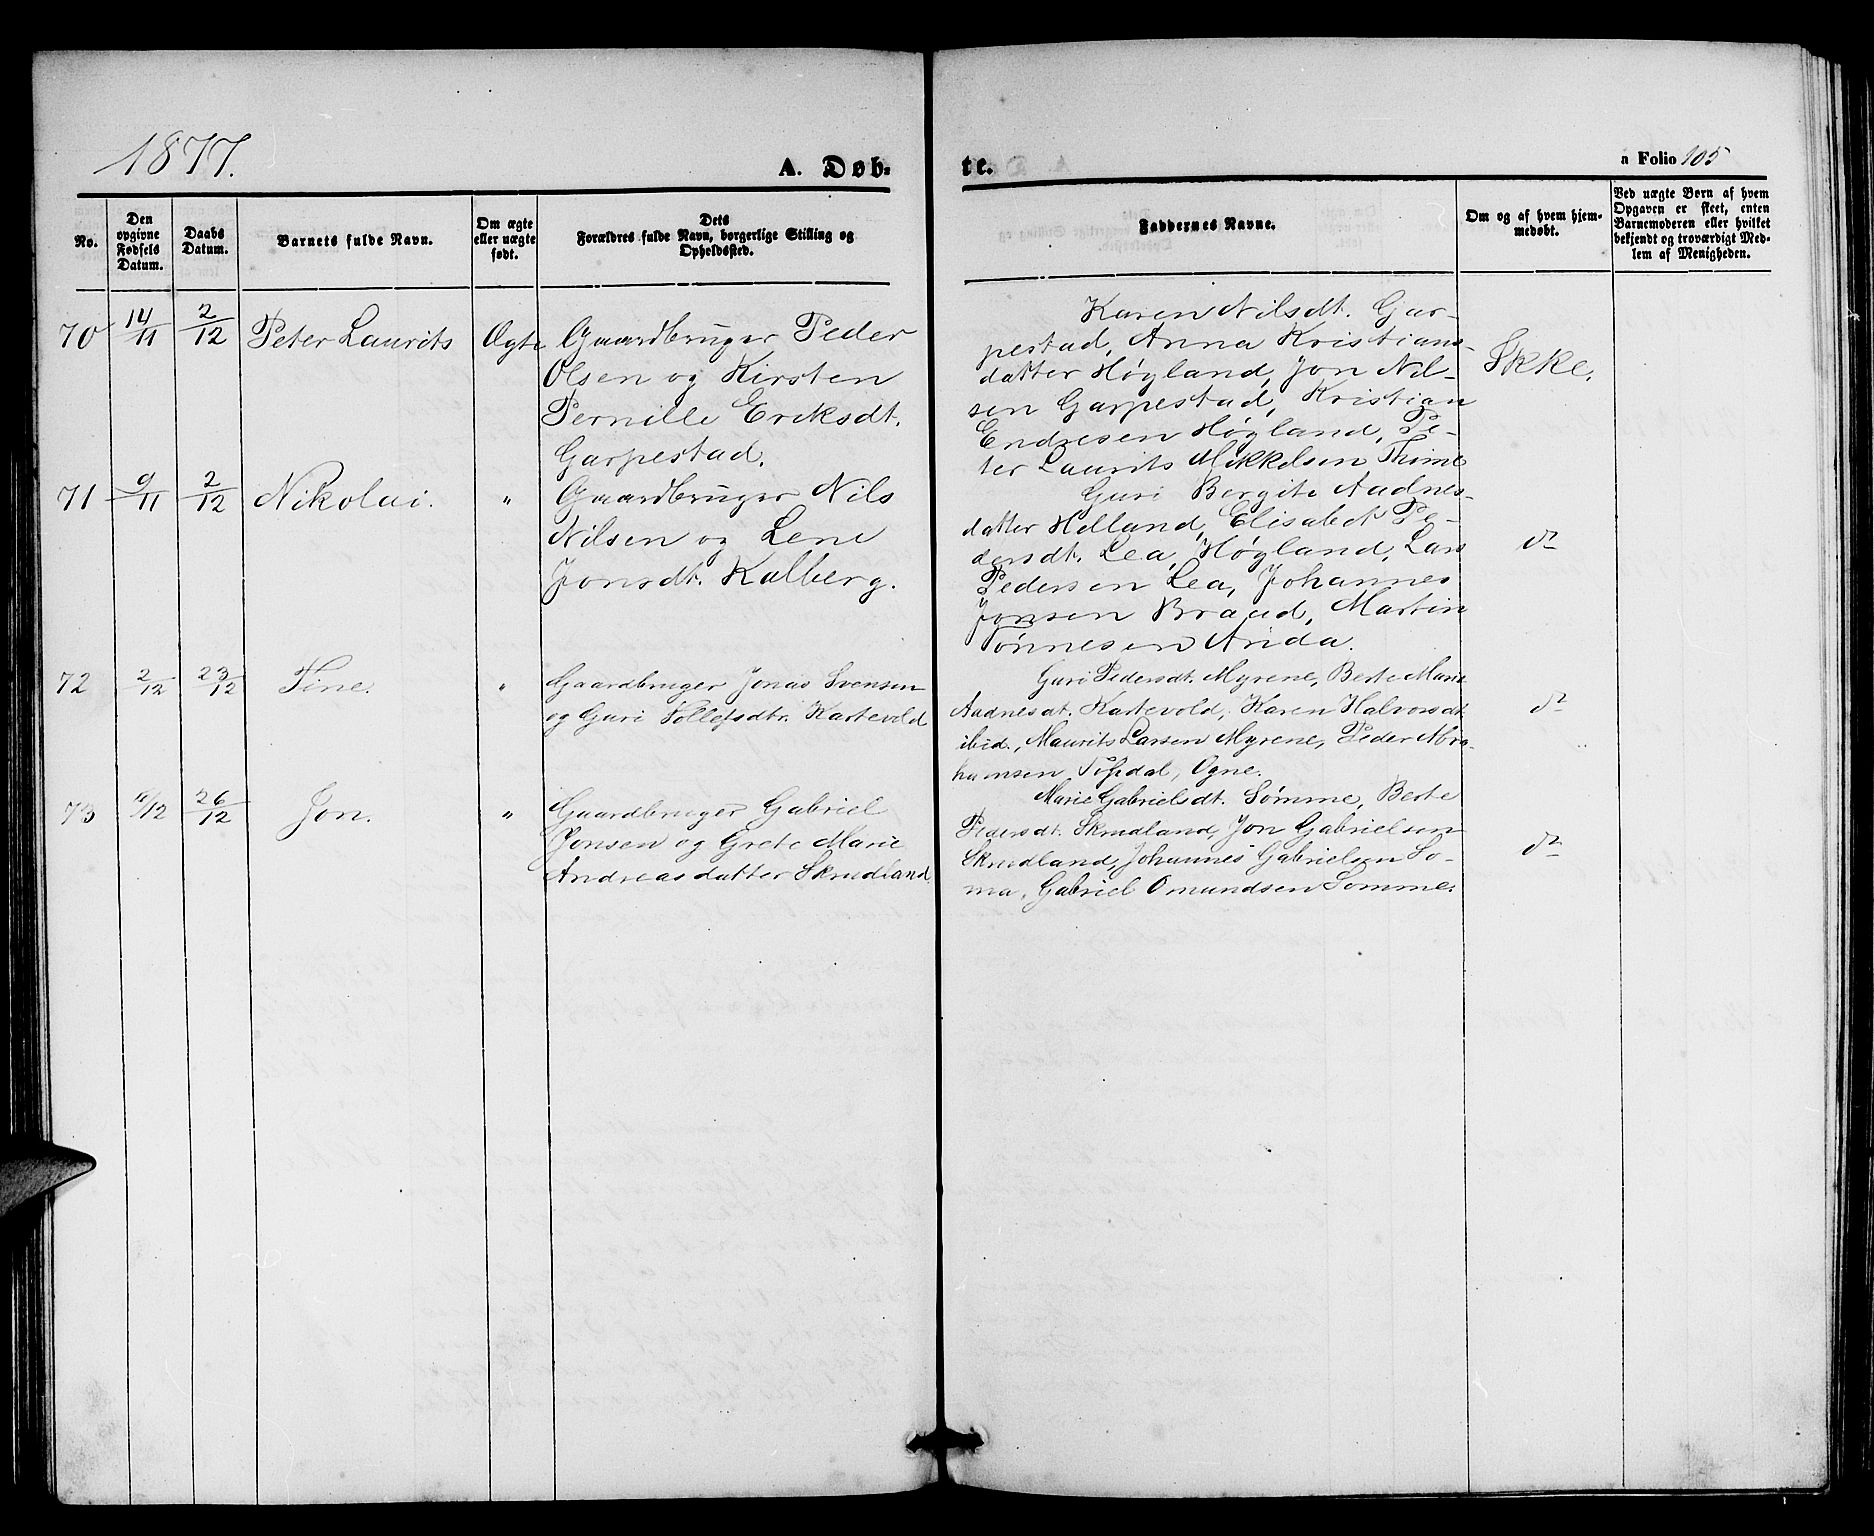 1877.
A. Døb-
te.
a Folio 105
No.
Den opgivne Fødsels Datum.
Daabs Datum.
Barnets fulde Navn.
Om ægte eller uægte født.
Dets Forældres fulde Navn, borgerlige Stilling og Opholdssted.
Faddernes Navne.
Om og af hvem hjemmedøbt.
Ved uægte Børn af hvem Opgaven er skeet, enten Barnemoderen eller hvilket bekjendt og troværdigt Medlem af Menigheden.
70 14/11 2/12 Peter Laurits Ægte
Gaardbruger Peder
Olsen og Kirsten
Pernille Eriksdt.
Garpestad.
Karen Nilsdt. Gar-
pestad, Anna Kristians-
datter Høyland, Jon Nil-
sen Garpestad, Kristian
Endresen Høyland, Pe-
ter Laurits Mikkelsen Thime
Ikke.
71 9/11 2/12 Nikolai. "
Gaardbruger Nils
Nilsen og Lene
Jonsdt. Kalberg.
Guri Bergite Aadnes-
datter Helland, Elisabet Pe-
dersdt. Lea, Høyland, Lars
Pedersen Lea, Johannes
Jonsen Braud, Martin
Tønnesen Arida.
do
72 2/12 23/12 Tine. "
Gaardbruger Jonas Svensen
og Guri Tollefsdtr. Kartevold
Guri Pedersdt. Myrene, Berte Marie
Aadnesdt. Kartevold, Karen Halvorsdt
ibid., Maurits Larsen Myrene, Peder Abra-
hamsen Tofsdal, Ogne.
do
73 /12 26/12 Jon. "
Gaardbruger Gabriel
Jonsen og Grete Marie
Andreasdatter Skrudland.
Marie Gabrielsdt. Sømme, Berte
Pedersdt. Skrudland, Jon Gabrielsen
Skrudland, Johannes Gabrielsen So-
ma, Gabriel Omundsen Sømme.
do